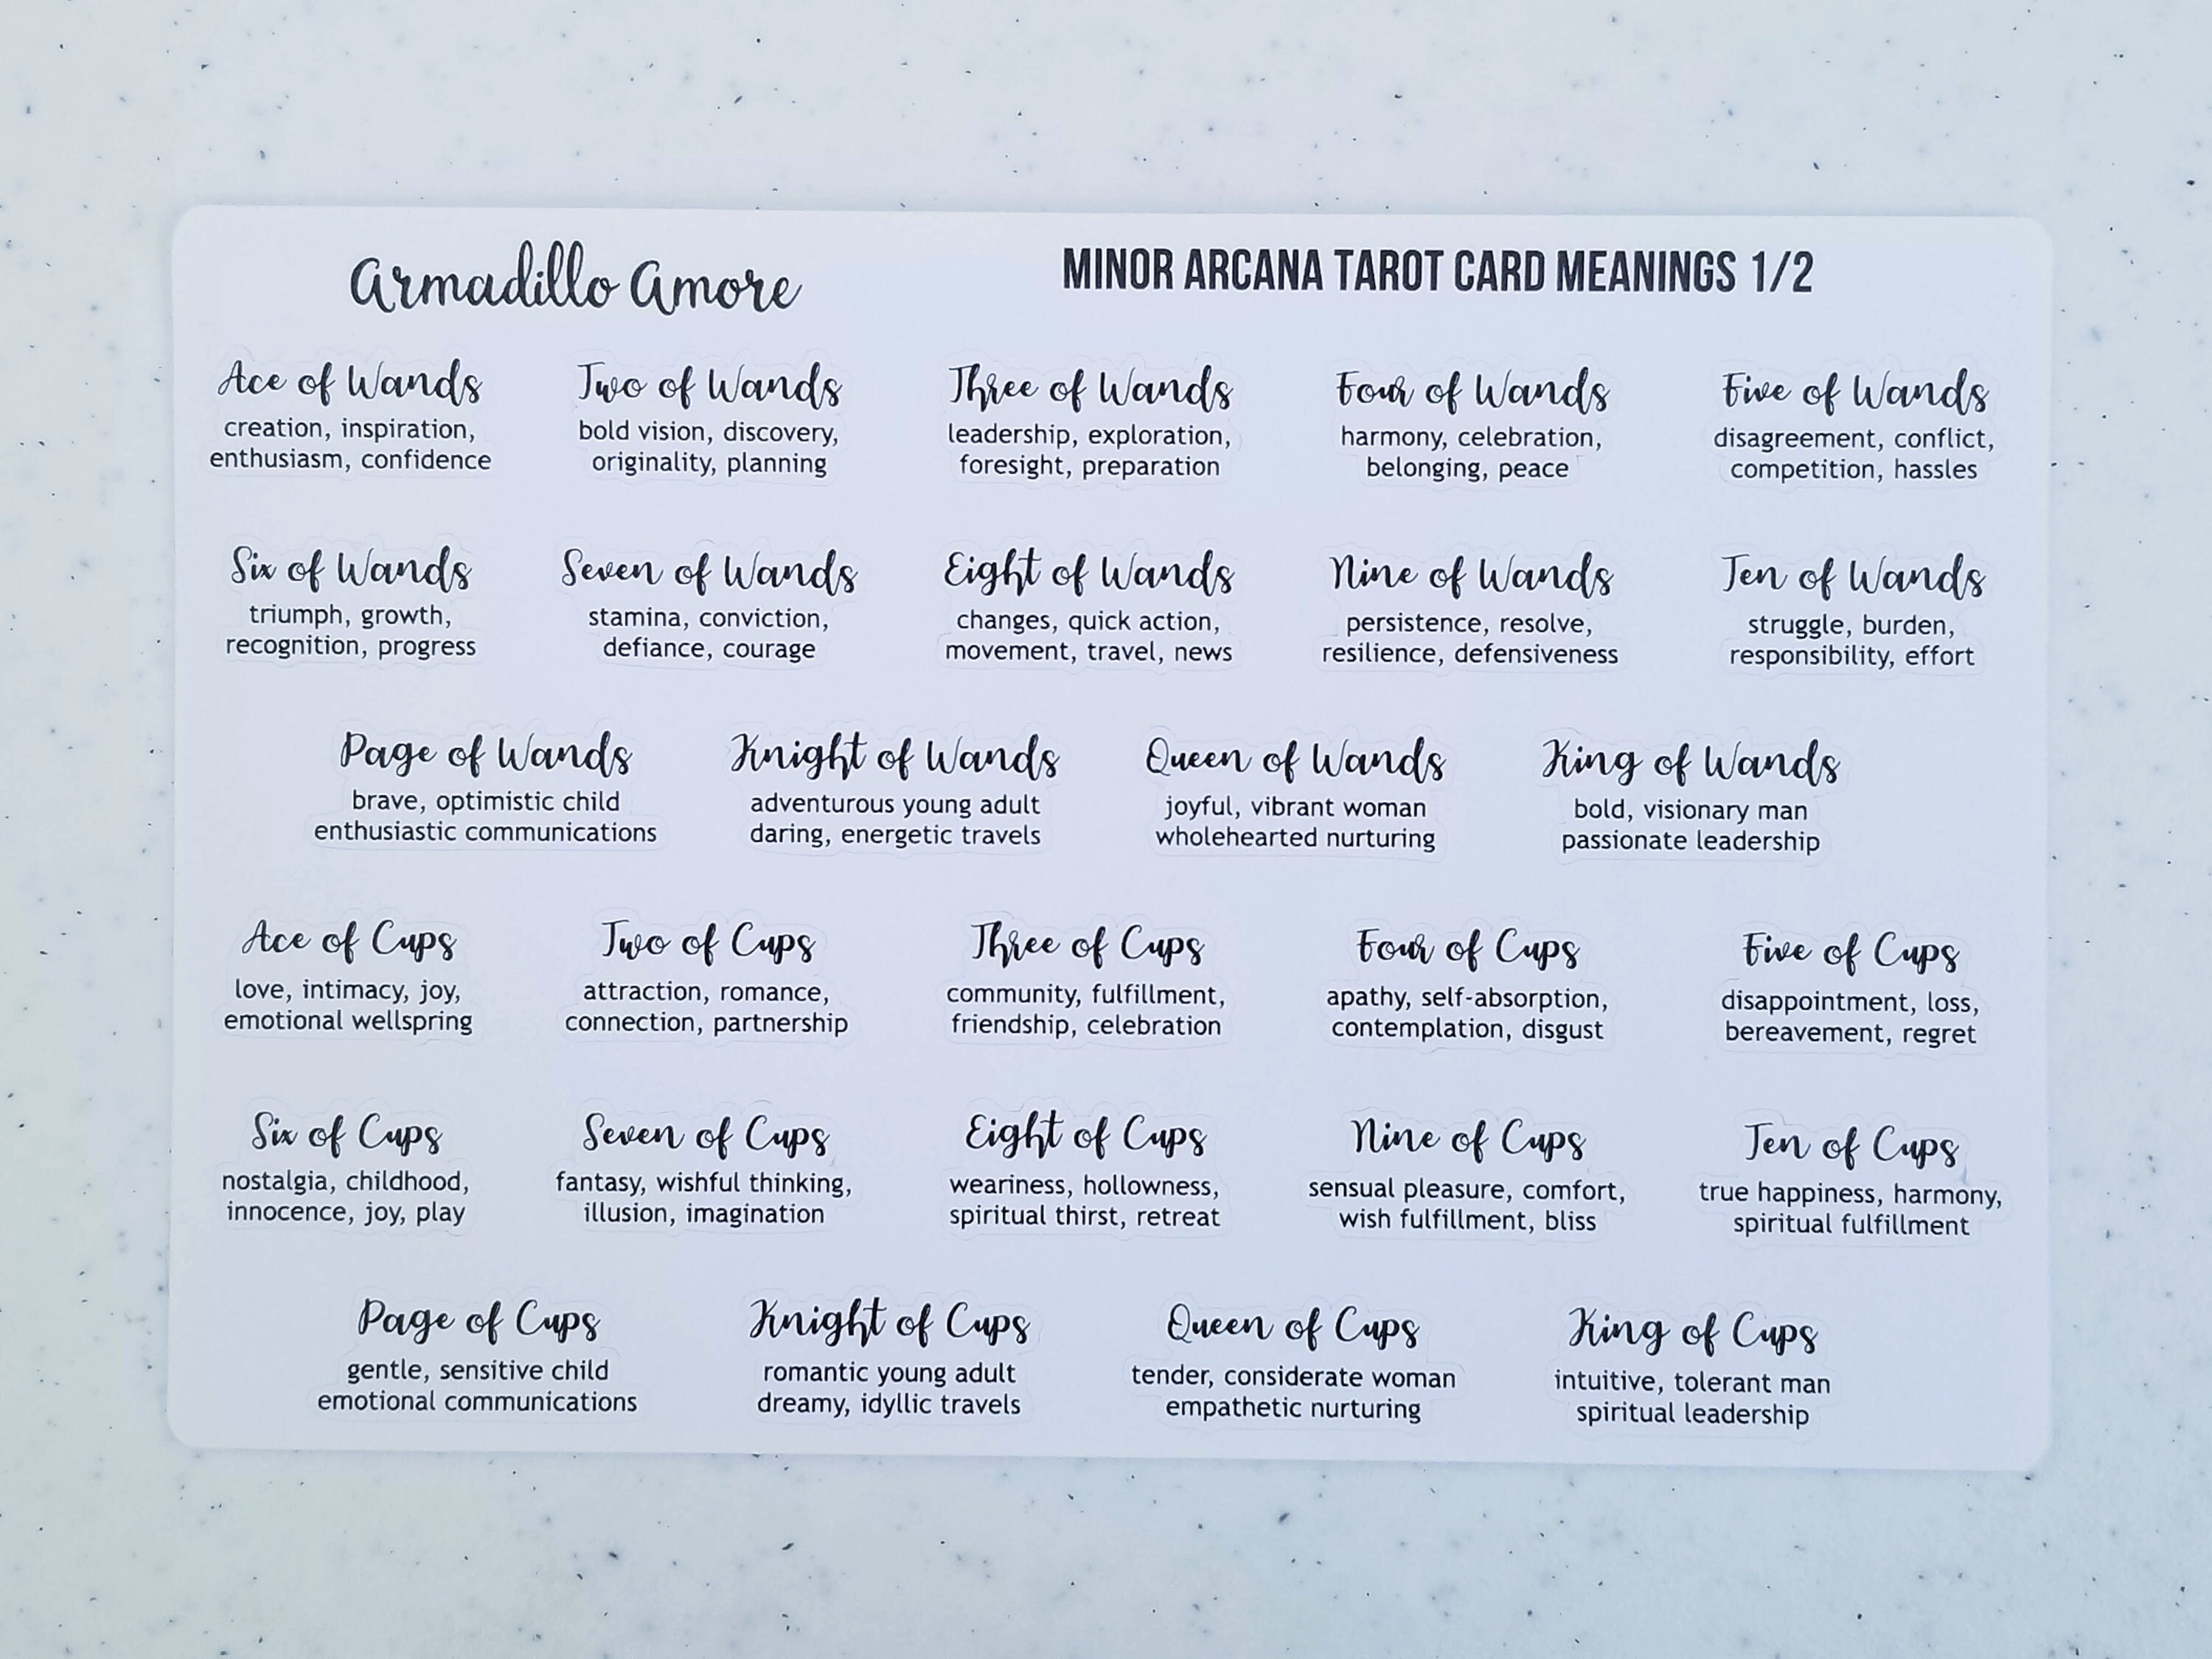 Armadillo Amore
MINOR ARCANA TAROT CARD MEANINGS 1/2
Ace of Wands
creation, inspiration,
enthusiasm, confidence
Two of Wands
bold vision, discovery,
originality, planning
Three of Wands
leadership, exploration,
foresight, preparation
Four of Wands
harmony, celebration,
belonging, peace
Five of Wands
disagreement, conflict,
competition, hassles
Six of Wands
triumph, growth,
recognition, progress
Seven of Wands
stamina, conviction,
defiance, courage
Eight of Wands
changes, quick action,
movement, travel, news
Nine of Wands
persistence, resolve,
resilience, defensiveness
Ten of Wands
struggle, burden,
responsibility, effort
Page of Wands
brave, optimistic child
enthusiastic communications
Knight of Wands
adventurous young adult
daring, energetic travels
Queen of Wands
joyful, vibrant woman
wholehearted nurturing
King of Wands
bold, visionary man
passionate leadership
Ace of Cups
love, intimacy, joy,
emotional wellspring
Two of Cups
attraction, romance,
connection, partnership
Three of Cups
community, fulfillment,
friendship, celebration
Four of Cups
apathy, self-absorption,
contemplation, disgust
Five of Cups
disappointment, loss,
bereavement, regret
Six of Cups
nostalgia, childhood,
innocence, joy, play
Seven of Cups
fantasy, wishful thinking,
illusion, imagination
Eight of Cups
weariness, hollowness,
spiritual thirst, retreat
Nine of Cups
sensual pleasure, comfort,
wish fulfillment, bliss
Ten of Cups
true happiness, harmony,
spiritual fulfillment
Page of Cups
gentle, sensitive child
emotional communications
Knight of Cups
romantic young adult
dreamy, idyllic travels
Queen of Cups
tender, considerate woman
empathetic nurturing
King of Cups
intuitive, tolerant man
spiritual leadership